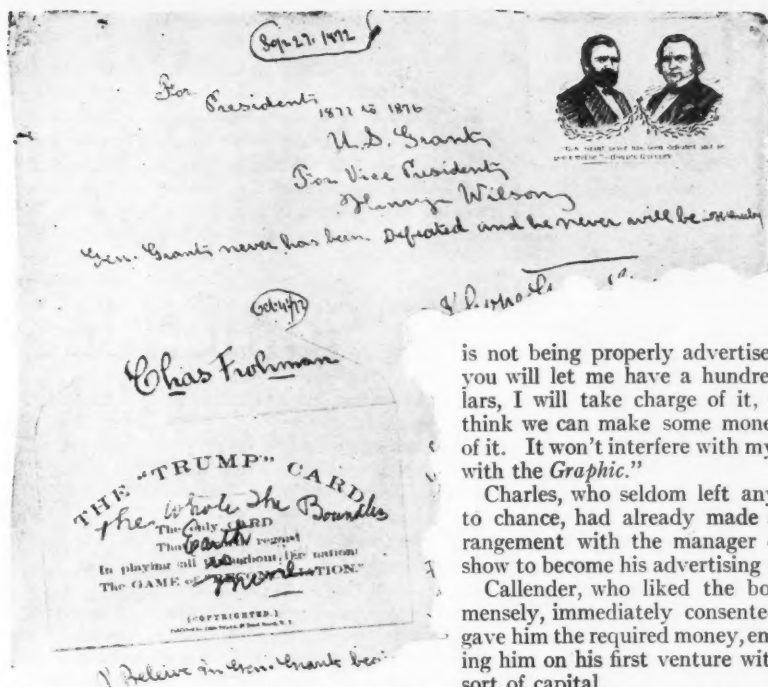 Sep. 27. 1872
For President
1872 to 1876
U.S. Grant
For Vice President
Henry Wilson
Gen. Grant never has been Defeated and he never will be
Oct. 4/72
Chas Frohman
THE "TRUMP" CARD
The whole The Boundless
The Only CARD
Earth
In playing all throughout the nation:
The GAME of
(COPYRIGHTED.)
I Beleive in Gen. Grant
is not being properly advertise
you will let me have a hundre
lars, I will take charge of it,
think we can make some mone
of it. It won't interfere with my
with the Graphic."
Charles, who seldom left any
to chance, had already made
rangement with the manager
show to become his advertising
Callender, who liked the bo
mensely, immediately consente
gave him the required money, em
ing him on his first venture wit
sort of capital.